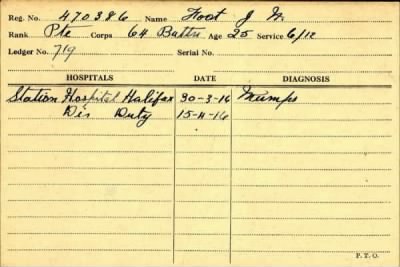 Reg. No. 470386 Name Foot J W.
Rank Pte Corps 64 Battn Age 25 Service 6/12
Ledger No. 719 Serial No.
HOSPITALS DATE DIAGNOSIS
Station Hospital Halifax 30-3-16 Mumps
Dis Duty 15-4-16
P. T. O.